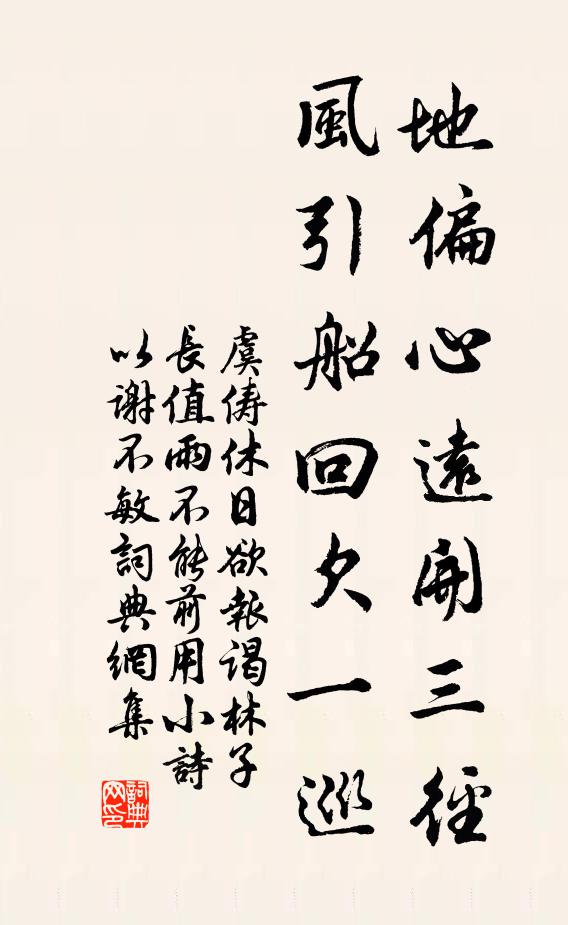 地偏心遠開三徑
風引船回欠一巡
虞儔休日欲報謁林子
長值雨不能前用小詩
以謝不敏詞典網集
詞典
网印